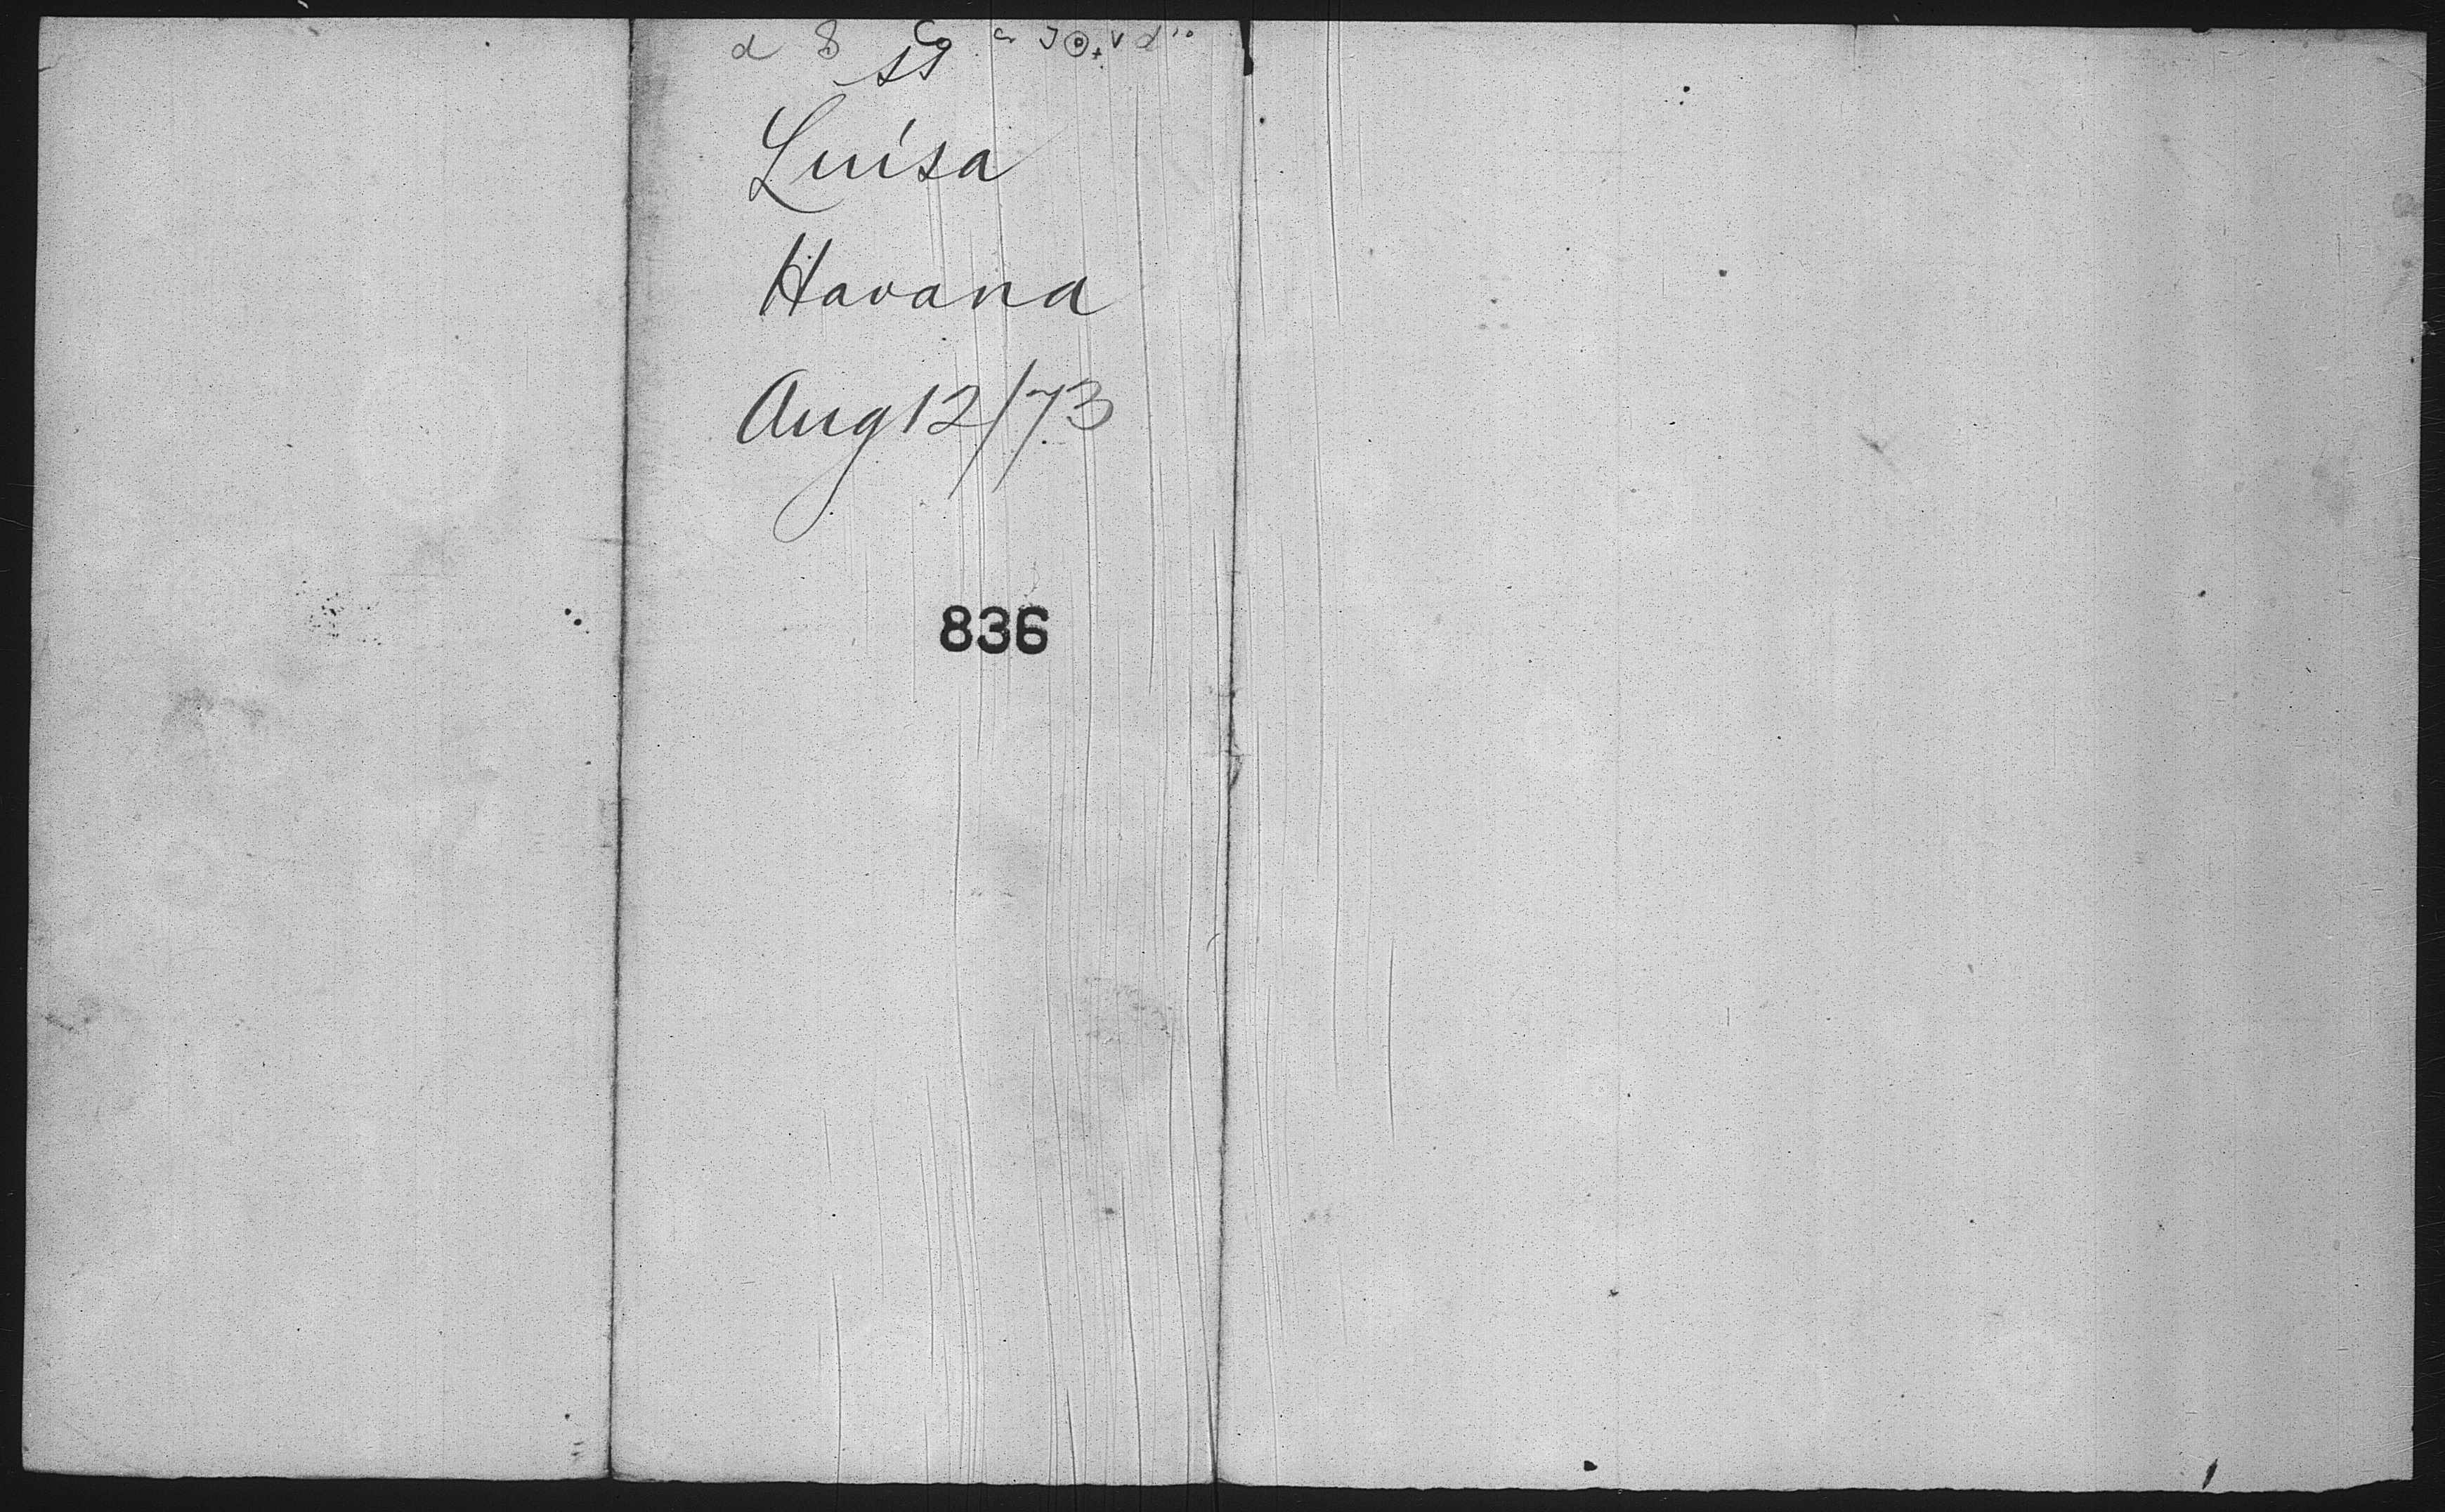 SS
Luisa
Havana
Aug 12/73
836